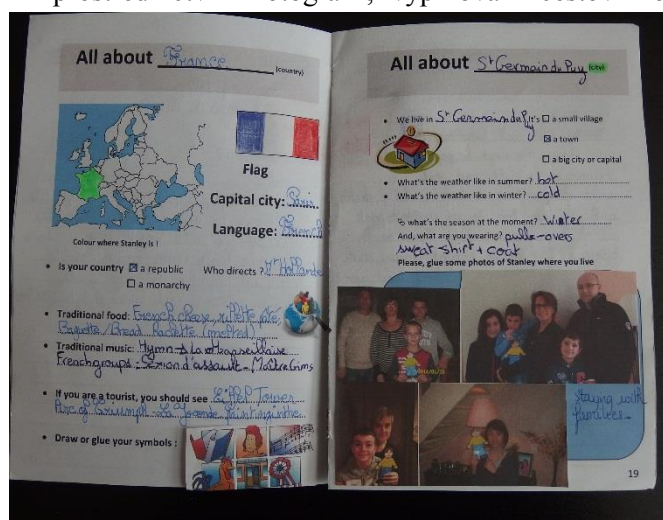 All about France (country)
Flag
Capital city: Paris
Language: French
Colour where Stanley is !
• Is your country ☒ a republic Who directs ? Mr Hollande
☐ a monarchy
• Traditional food: French cheese, rillette, pâté,
Baguette/Bread Raclette (melted)
• Traditional music: Hymn: La Marseillaise
French groups: Sexion d'assaut - Maître Gims
• If you are a tourist, you should see Eiffel Tower
Arc of Triumph La Joconde painting in the
• Draw or glue your symbols :
All about St Germain du Puy (city)
• We live in St Germain du Puy It's ☐ a small village
☒ a town
☐ a big city or capital
• What's the weather like in summer? hot
• What's the weather like in winter? cold
what's the season at the moment? Winter
And, what are you wearing? pulls-overs
sweat shirt + coat
Please, glue some photos of Stanley where you live
staying with
families
19